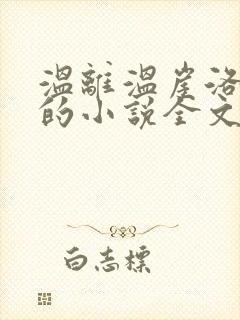 温離温崖洛
的小說全文
白志標